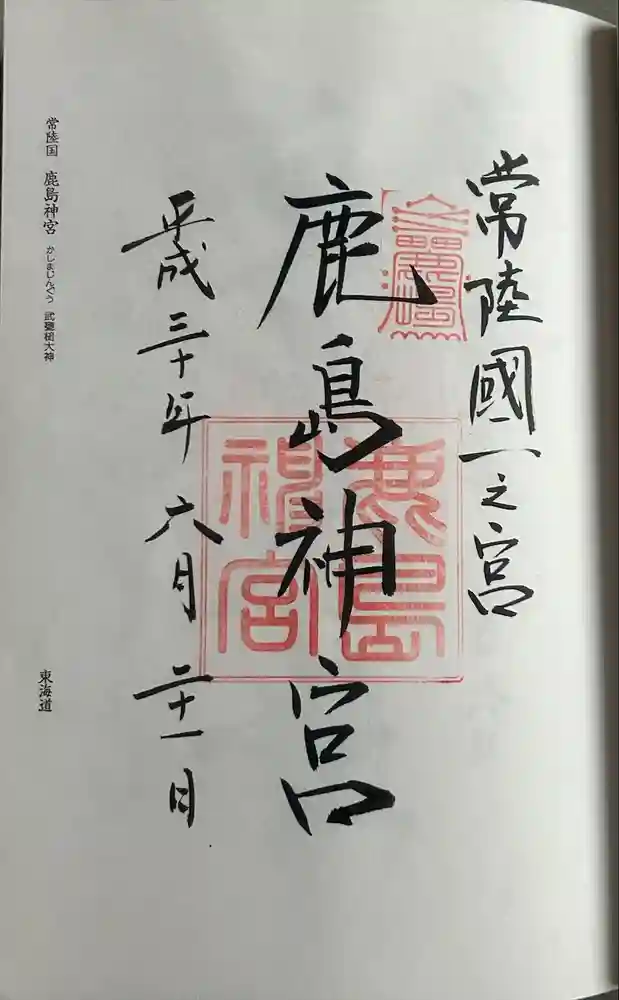 常陸國一之宮
鹿島神宮
鹿島
神宮
平成三十年六月二十一日
常陸国 鹿島神宮 かしまじんぐう 武甕槌大神
東海道